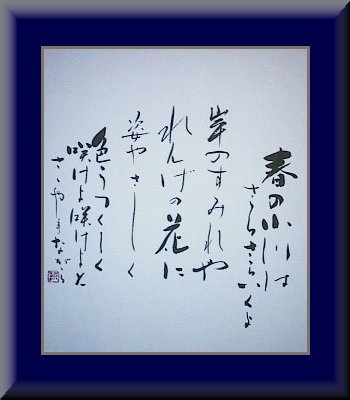 春の小川は
さらさらいくよ
岸のすみれや
れんげの花に
姿やさしく
色うつくしく
咲けよ咲けよと
ささやきながら